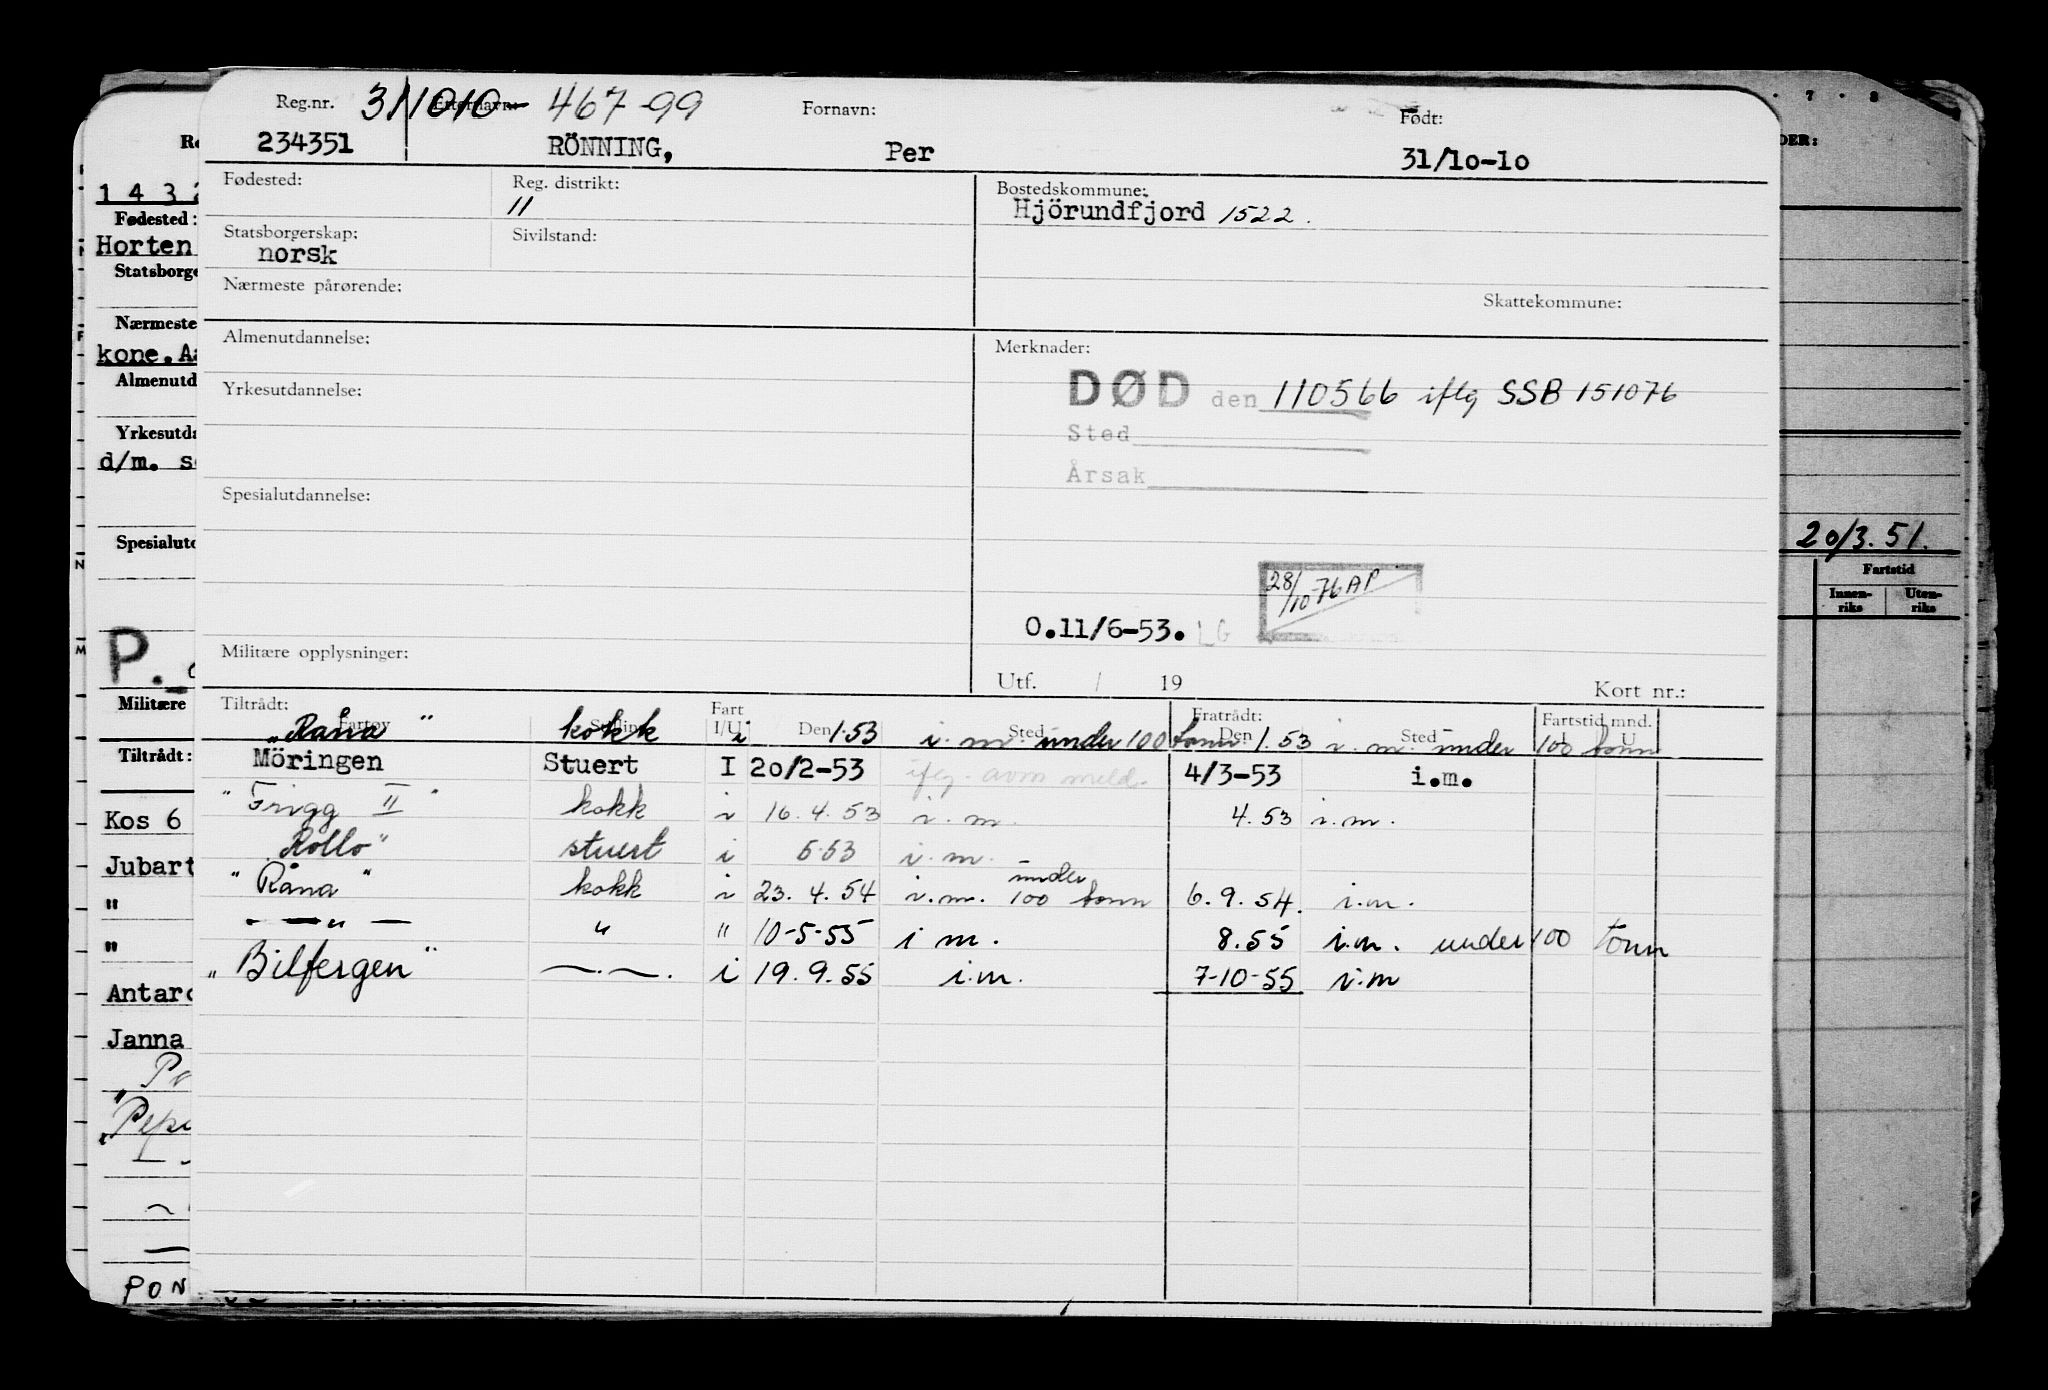 Reg.nr. 311010-467-99 Etternavn: Fornavn: Født:
234351 RÖNNING, Per 31/10-10
Fødested: Reg. distrikt: Bostedskommune:
11 Hjörundfjord 1522.
Statsborgerskap: Sivilstand:
norsk
Nærmeste pårørende: Skattekommune:
Almenutdannelse: Merknader:
DØD den 110566 iflg SSB 151076
Yrkesutdannelse:
Sted
Årsak
Spesialutdannelse:
28/10-76 AP
O.11/6-53. LG
Militære opplysninger:
Utf. / 19 Kort nr.:
Tiltrådt: Fart Fratrådt: Fartstid mnd.
Fartøy Stilling I/U Den Sted Den Sted I U
"Råna" kokk i 1.53 i.m. under 100 tonn 1.53 i.m. under 100 tonn
Möringen Stuert I 20/2-53 iflg. avm meld. 4/3-53 i.m.
"Frigg II" kokk i 16.4.53 i.m. 4.53 i.m.
Rollo" stuert i 5.53 i.m.
"Råna" kokk i 23.4.54 i.m. under 100 tonn 6.9.54. i.m.
— " — " " 10-5-55 i m. 8.55 i.m. under 100 tonn
"Bilfergen" —.—. i 19.9.55 i.m. 7-10-55 i.m
1432
Fødested:
Horten
Statsborge
Nærmeste
kone. Aa
Almenutd
Yrkesutda
d/m. s
Spesialutd
P.
Militære
Tiltrådt:
Kos 6
Jubart
"
"
Antarc
Janna
"P
"Pep
PON
7 · 8
DER:
20/3.51.
Fartstid
Innen-riks Uten-riks
N
M